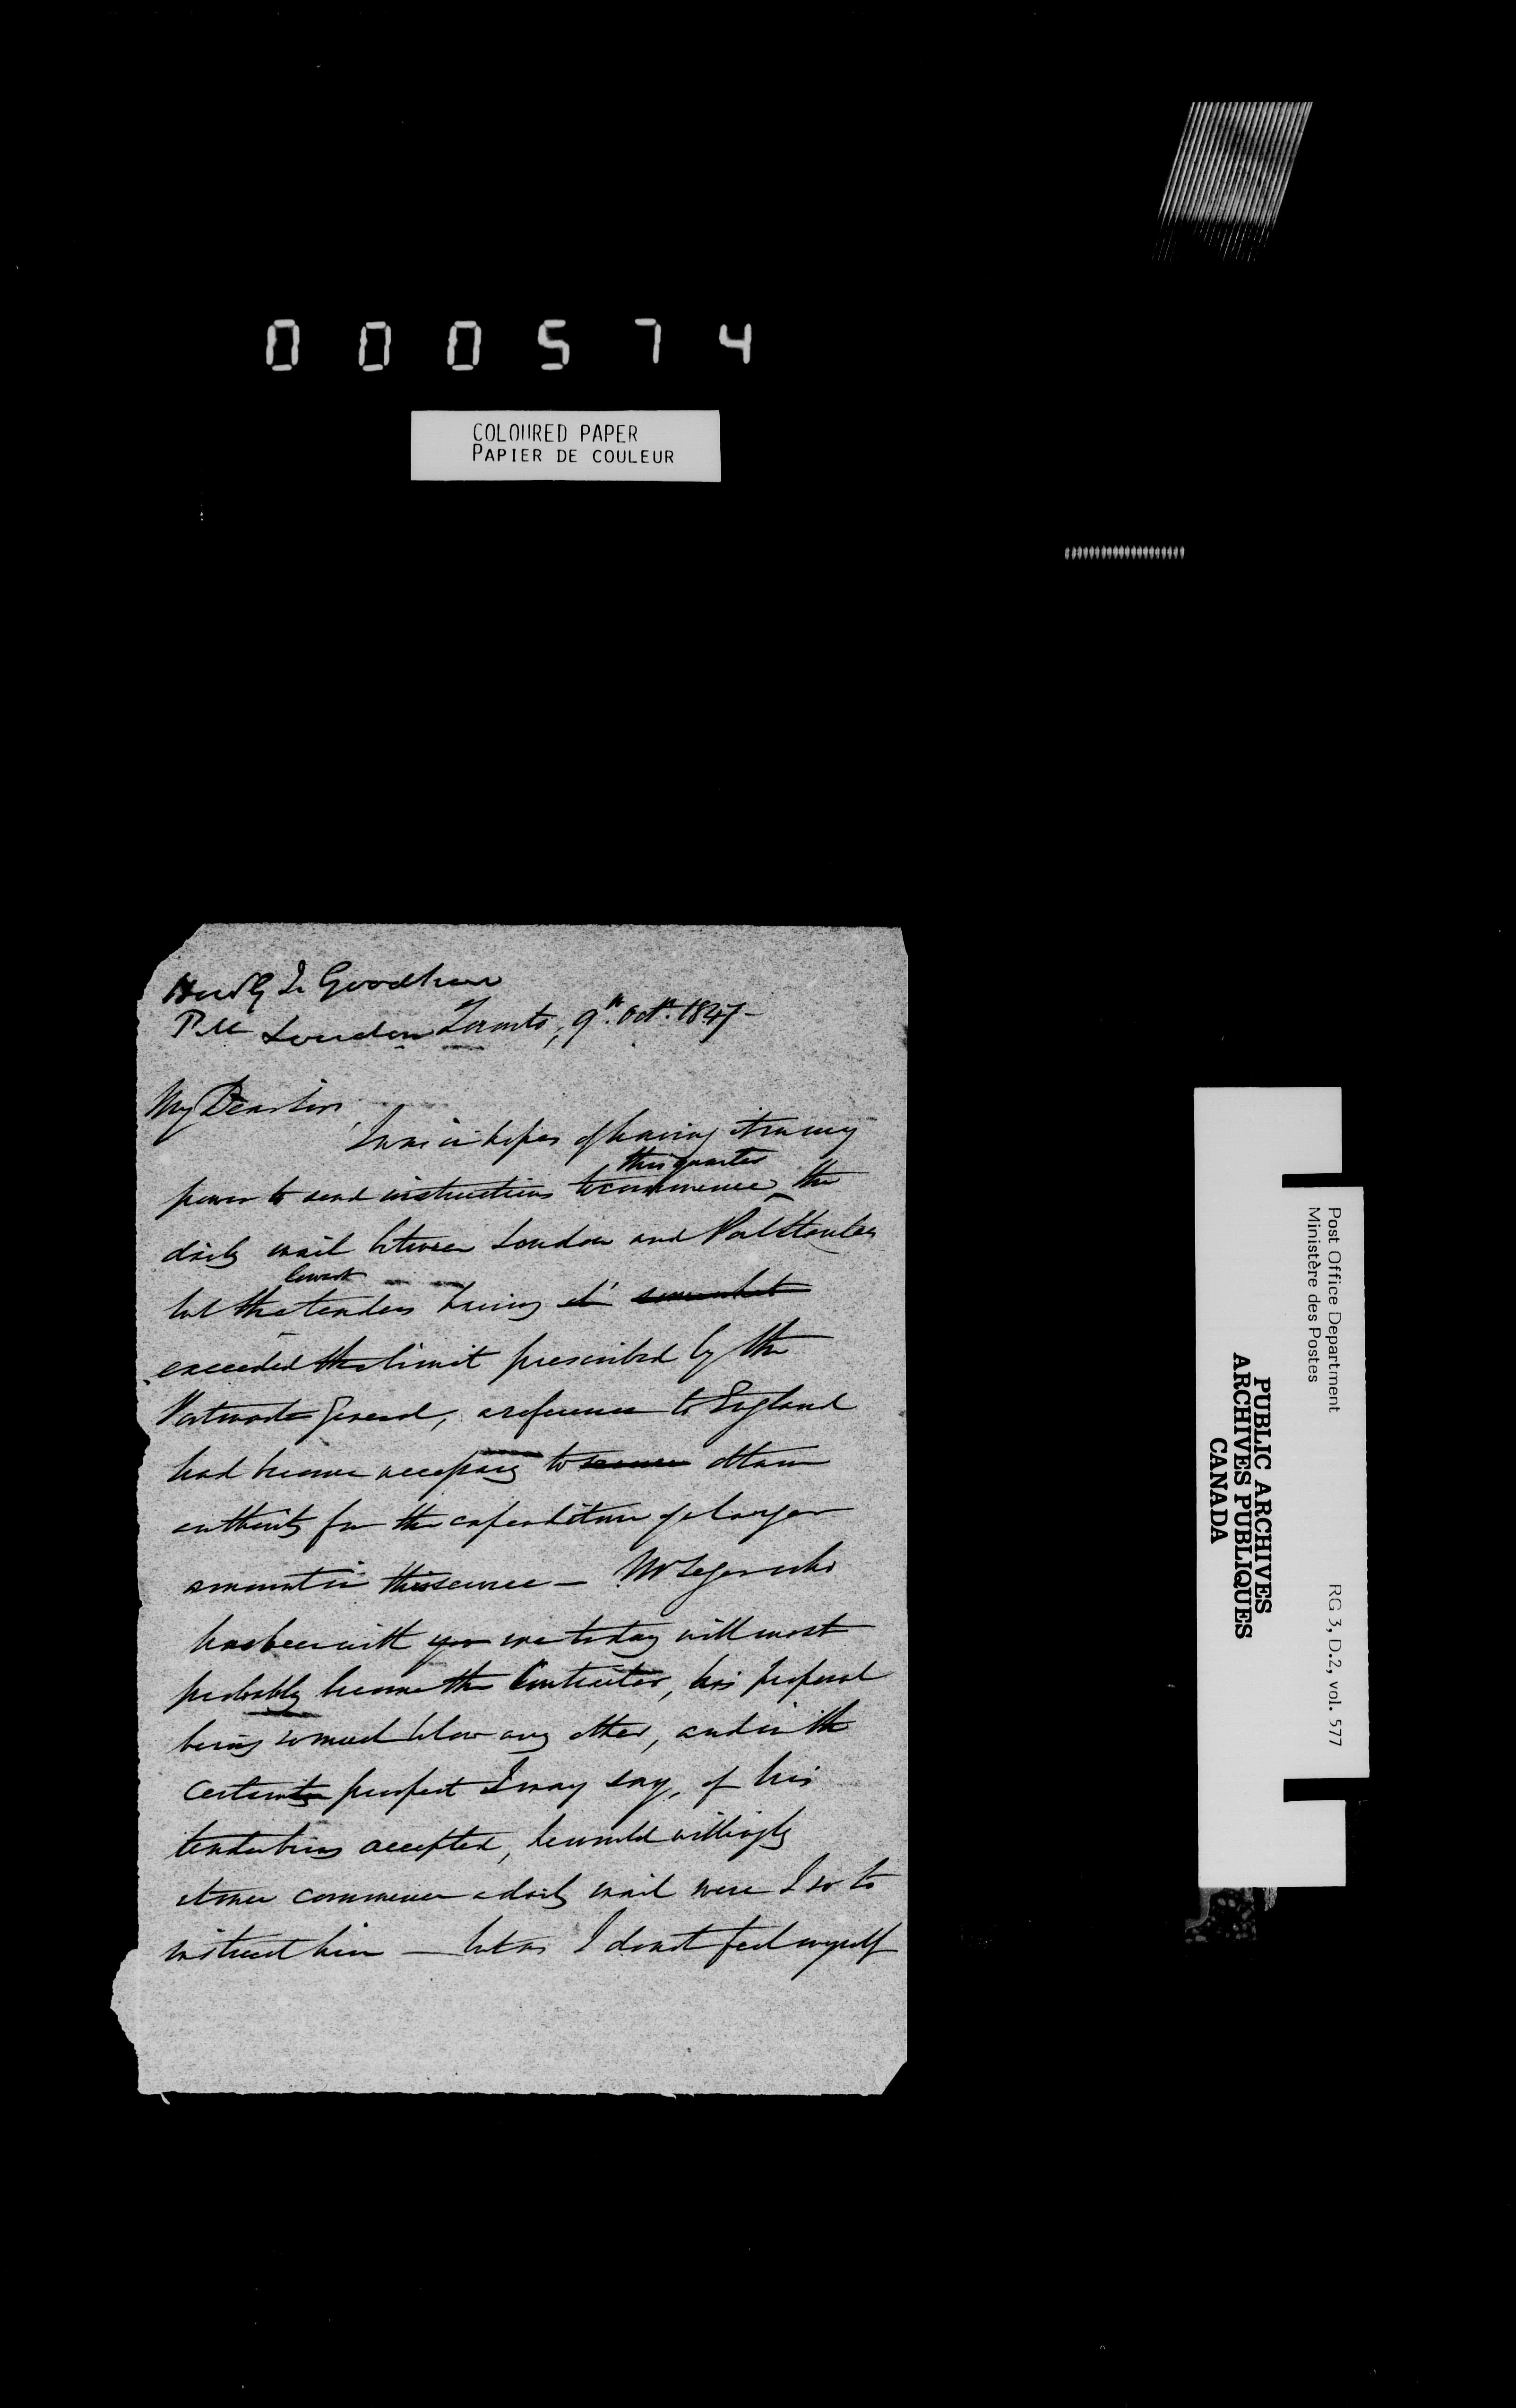 0 0 0 5 7 4
COLOURED PAPER
PAPIER DE COULEUR
Goodhue
P.M London Toronto, 9th. Octr. 1847-
My Dear Sir,
I was in hopes of having it in my
this quarter
power to send instructions to commence ^ the
daily mail between London and Port Stanley
lowest
but the tenders having somewhat
exceeded the limit prescribed by the
Postmaster General, a reference to England
had become necessary to obtain
authority for the expenditure of a larger
amount in this service - Mr who
has been with you me today will most
probably become the Contractor, his proposal
being so much below any other, and in the
certainty prospect I may say, of his
tender being accepted, he would willingly
at once commence a daily mail were I so to
instruct him - but as I do not feel myself
Post Office Department
Ministère des Postes
RG 3, D.2, vol. 577
PUBLIC ARCHIVES
ARCHIVES PUBLIQUES
CANADA